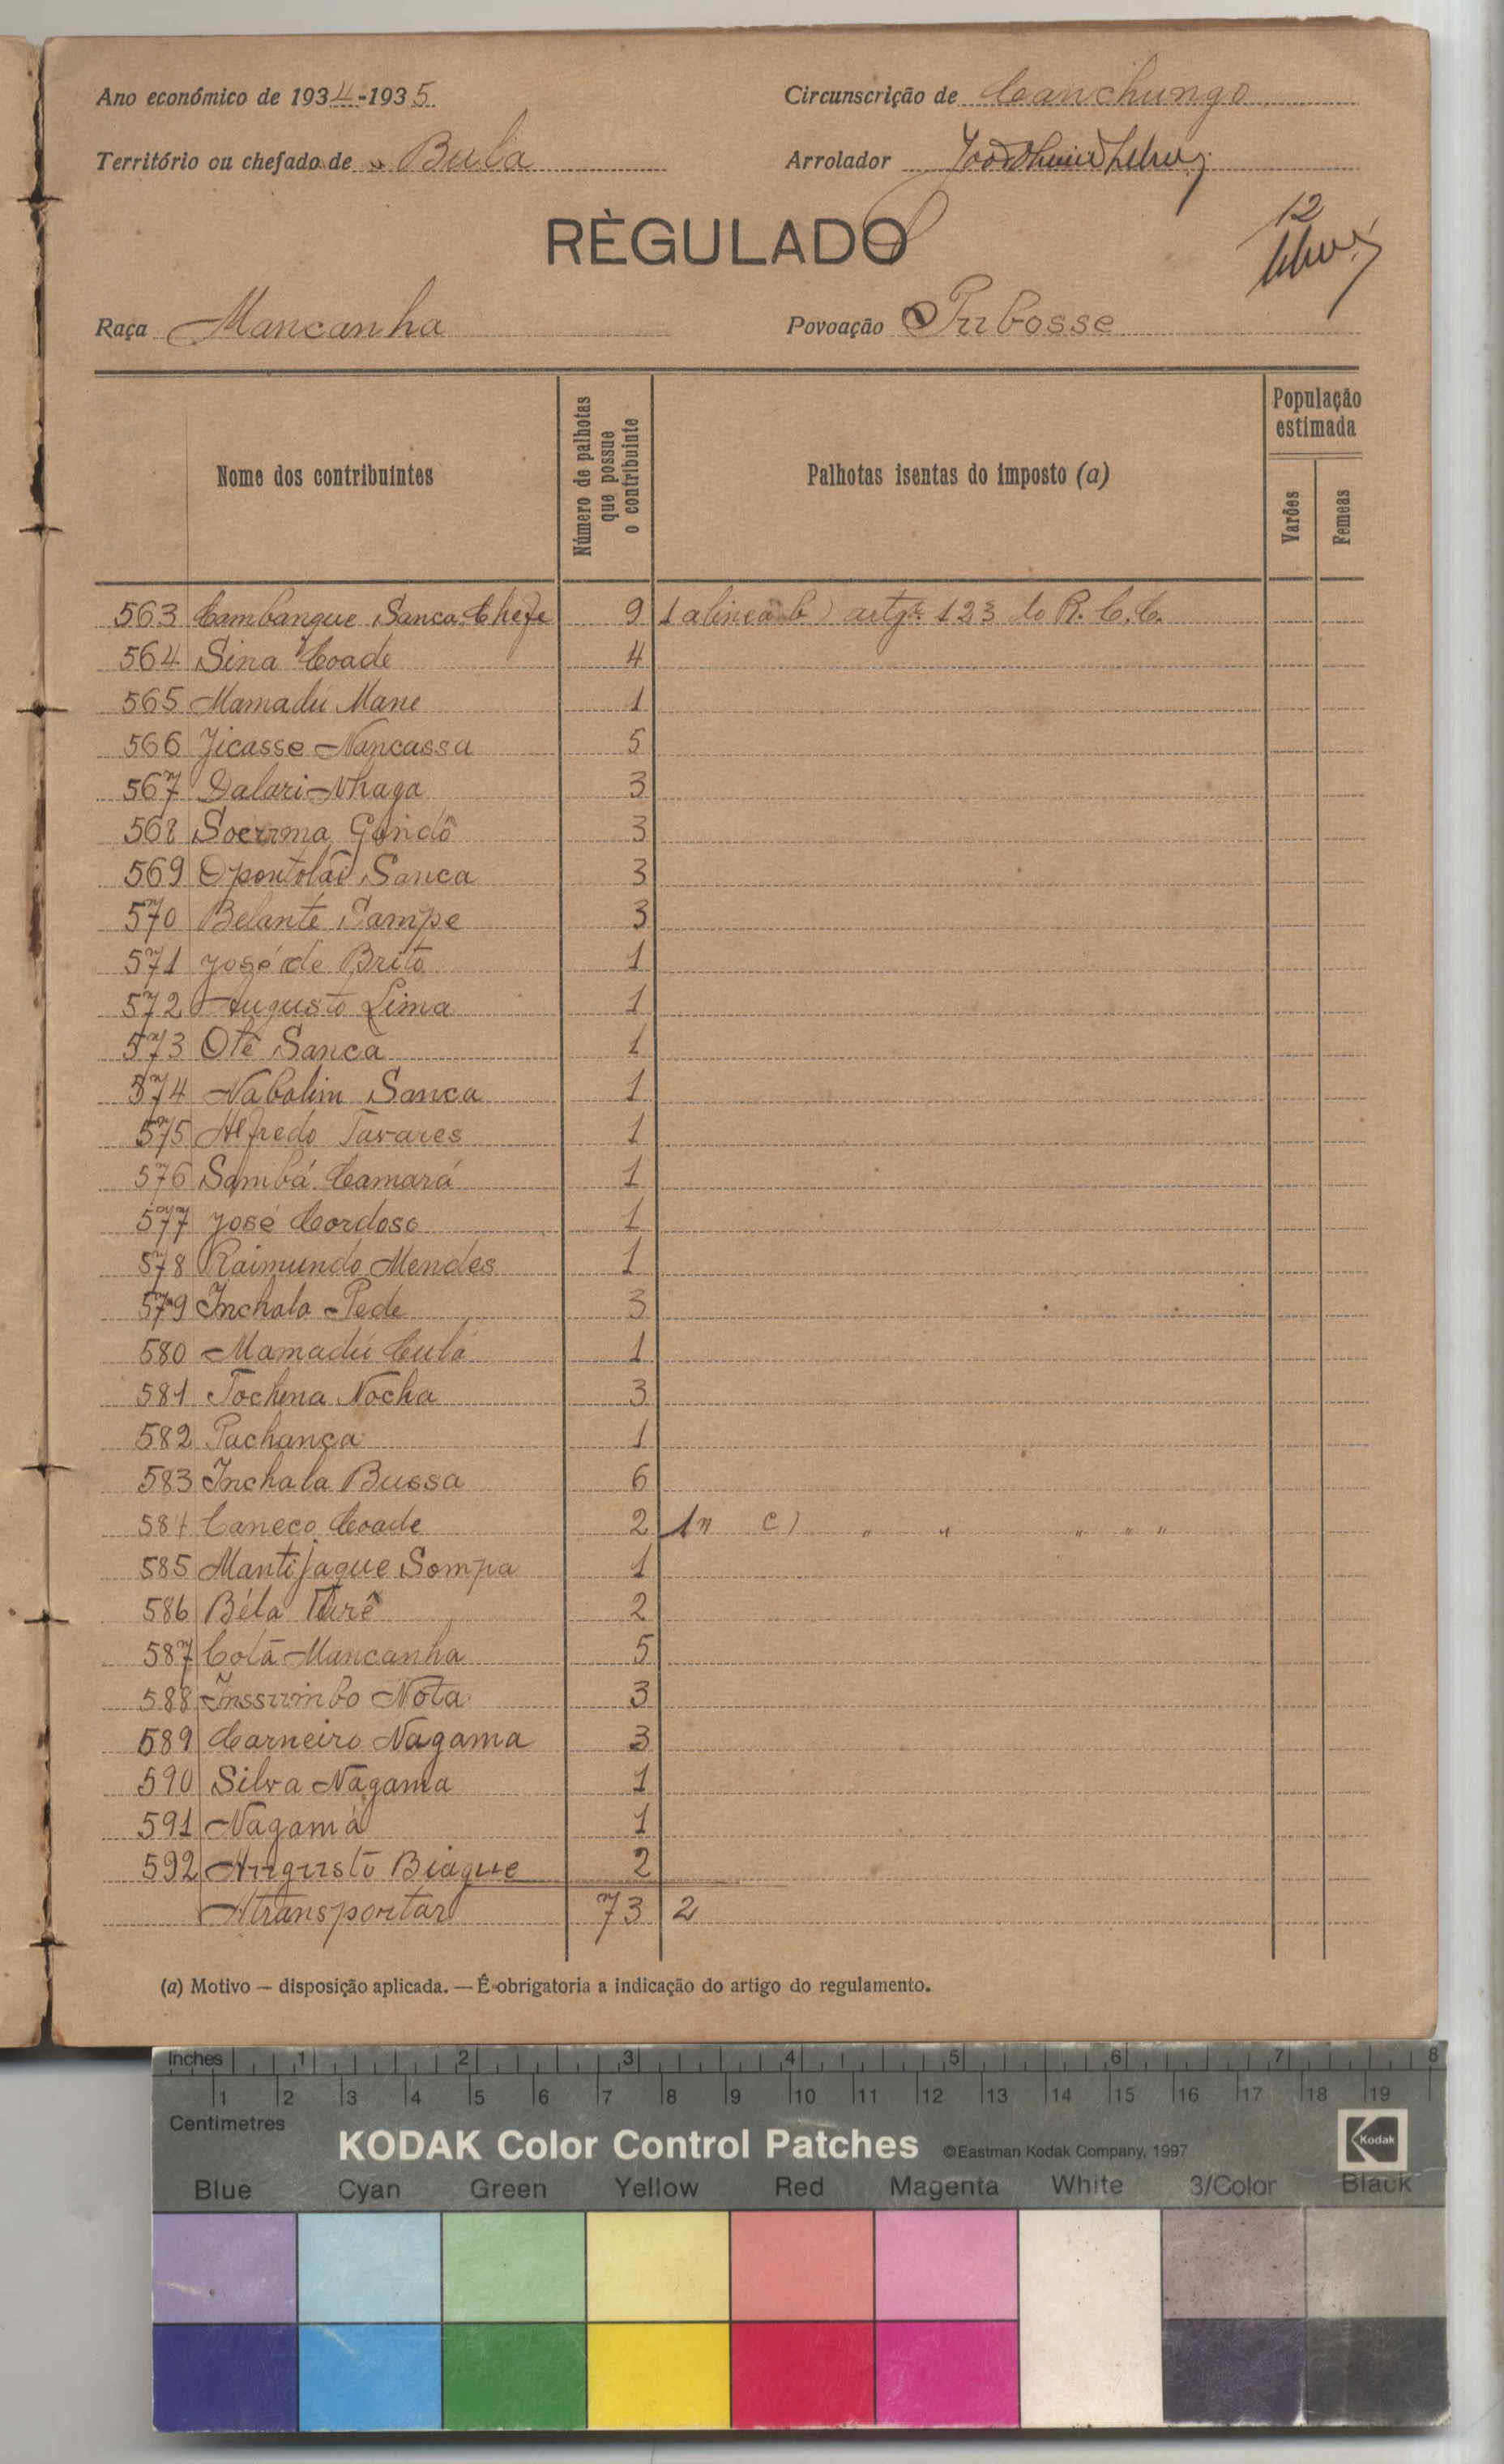 Ano económico de 1934-1935
Circunscrição de Canchungo
Território ou chefado de " Bula
Arrolador
12
RÈGULADO
Raça Mancanha
Povoação Pubosse
Nome dos contribuintes
Número de palhotas que possue o contribuinte
Palhotas isentas do imposto (a)
População estimada
Varões
Femeas
563 Cambanque Sanca Chefe 9 1 alinea b) artgº 123 do R. C. C.
564 Sina Coade 4
565 Mamadú Mane 1
566 Jicasse Nancassa 5
567 Dalari Nhaga 3
568 Gondô 3
569 Sanca 3
570 Belante Sampe 3
571 José de Brito 1
572 Augusto Lima 1
573 Otê Sanca 1
574 Nabolim Sanca 1
575 Alfredo Tavares 1
576 Sambá Camará 1
577 José Cardoso 1
578 Raimundo Mendes 1
579 Inchala Pede 3
580 Mamadú Culá 1
581 Tochena Nocha 3
582 Pachança 1
583 Inchala Bussa 6
584 Caneco Coade 2 1 " c) " " " " "
585 Mantijaque Sompa 1
586 Béla Turê 2
587 Colã Mancanha 5
588 Inssumbo Nota 3
589 Carneiro Nagama 3
590 Silva Nagama 1
591 Nagamá 1
592 Augusto Biague 2
A transportar 73 2
(a) Motivo — disposição aplicada. — É obrigatoria a indicação do artigo do regulamento.
Inches 1 2 3 4 5 6 7 8
1 2 3 4 5 6 7 8 9 10 11 12 13 14 15 16 17 18 19
Centimetres
KODAK Color Control Patches ©Eastman Kodak Company, 1997 Kodak
Blue Cyan Green Yellow Red Magenta White 3/Color Black